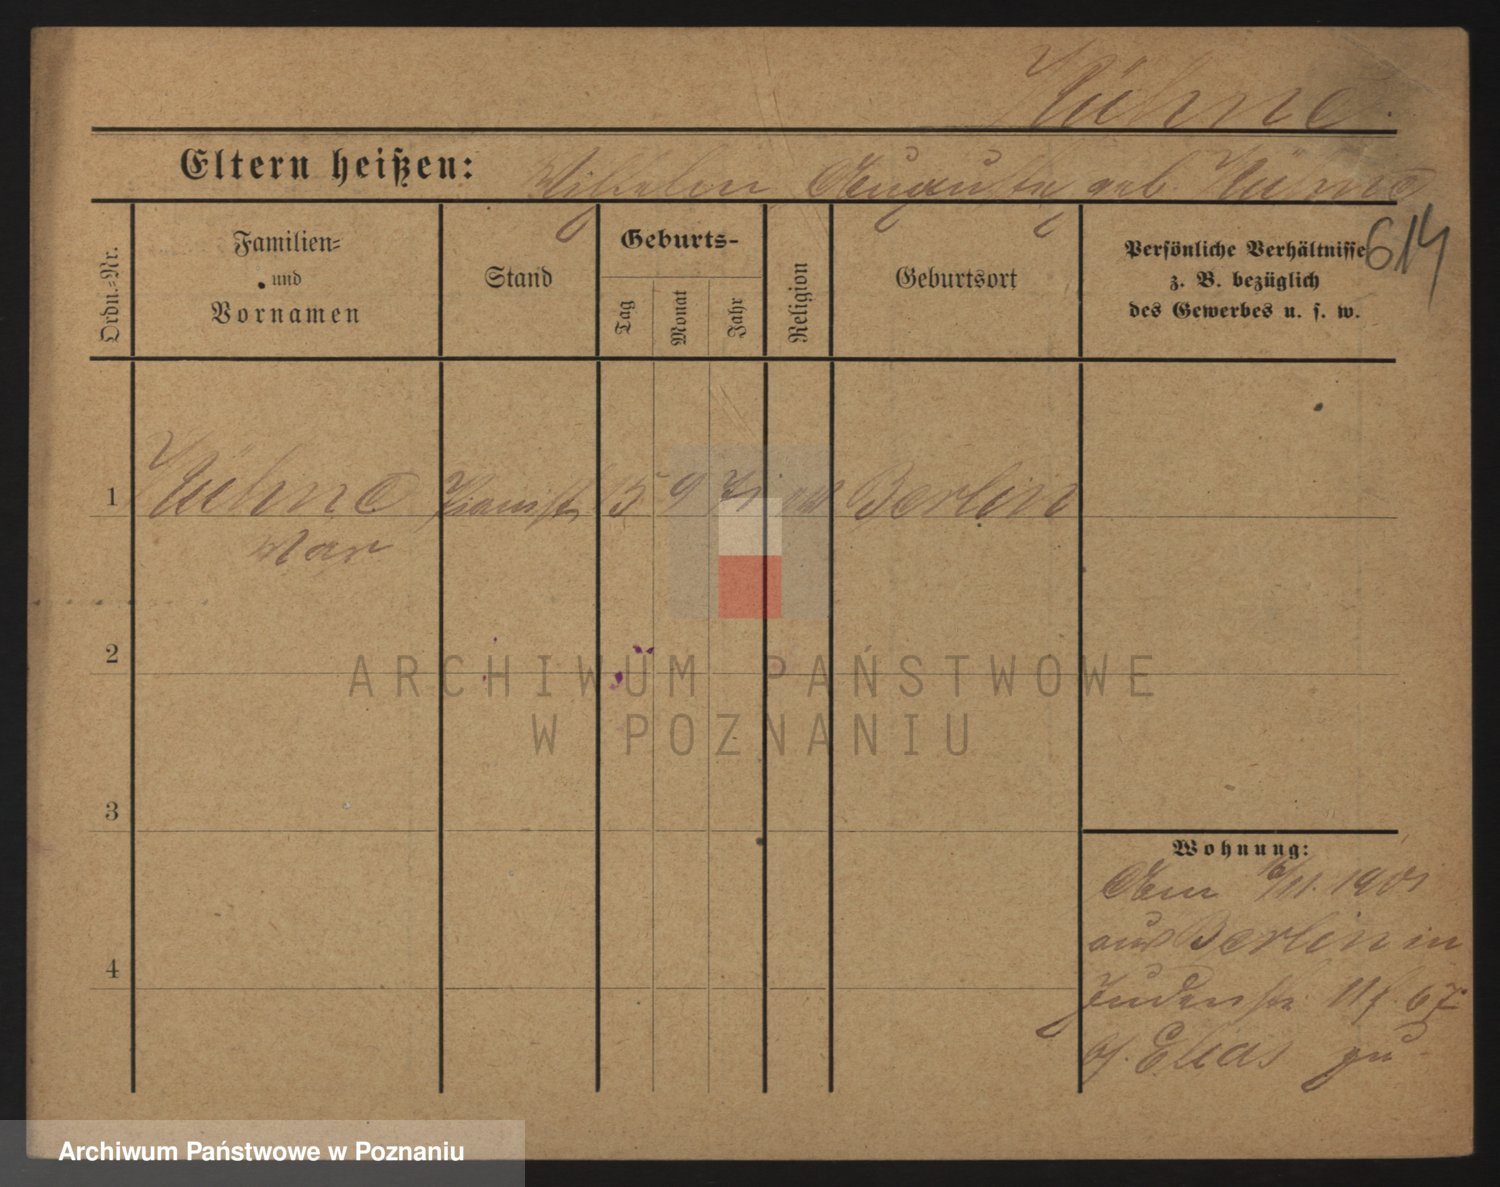 Kühne.
Eltern heißen: Wilhelm Auguste geb. Kühne
614
Ordn.=Nr.
Familien=
und
Vornamen
Stand
Geburts-
Tag
Monat
Jahr
Religion
Geburtsort
Persönliche Verhältnisse
z. B. bezüglich
des Gewerbes u. s. w.
1 Kühne Pianist 15 9 Berlin
2
3
4
Wohnung:
11. 1901
aus Berlin in
Judenstr.
Elias zu
ARCHIWUM PAŃSTWOWE
W POZNANIU
Archiwum Państwowe w Poznaniu